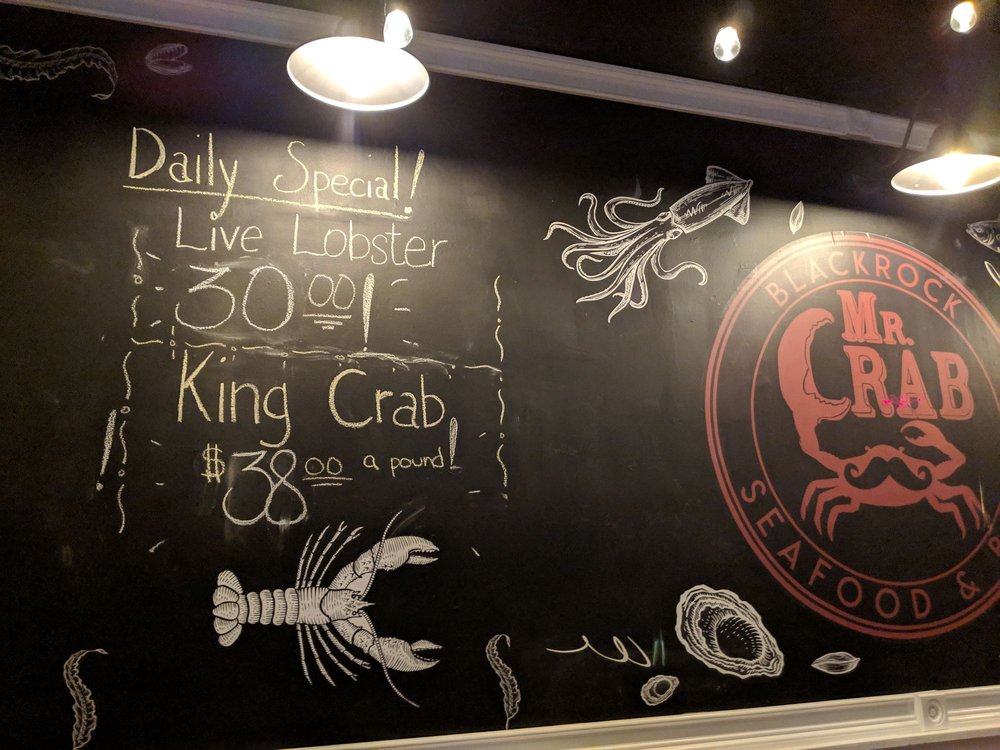 Daily Special!
Live Lobster
30.00!
King Crab
$38.00 a pound!
BLACKROCK
MR.
CRAB
SEAFOOD &